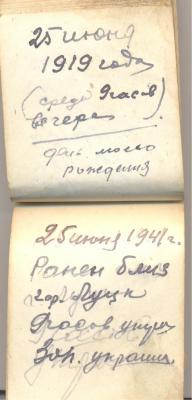 25 июня
1919 года
(среда 9 часов
вечера)
день моего
рождения
25 июня 1941 г.
Ранен близ
гор. Луцк
9 часов утра
Зап. украина